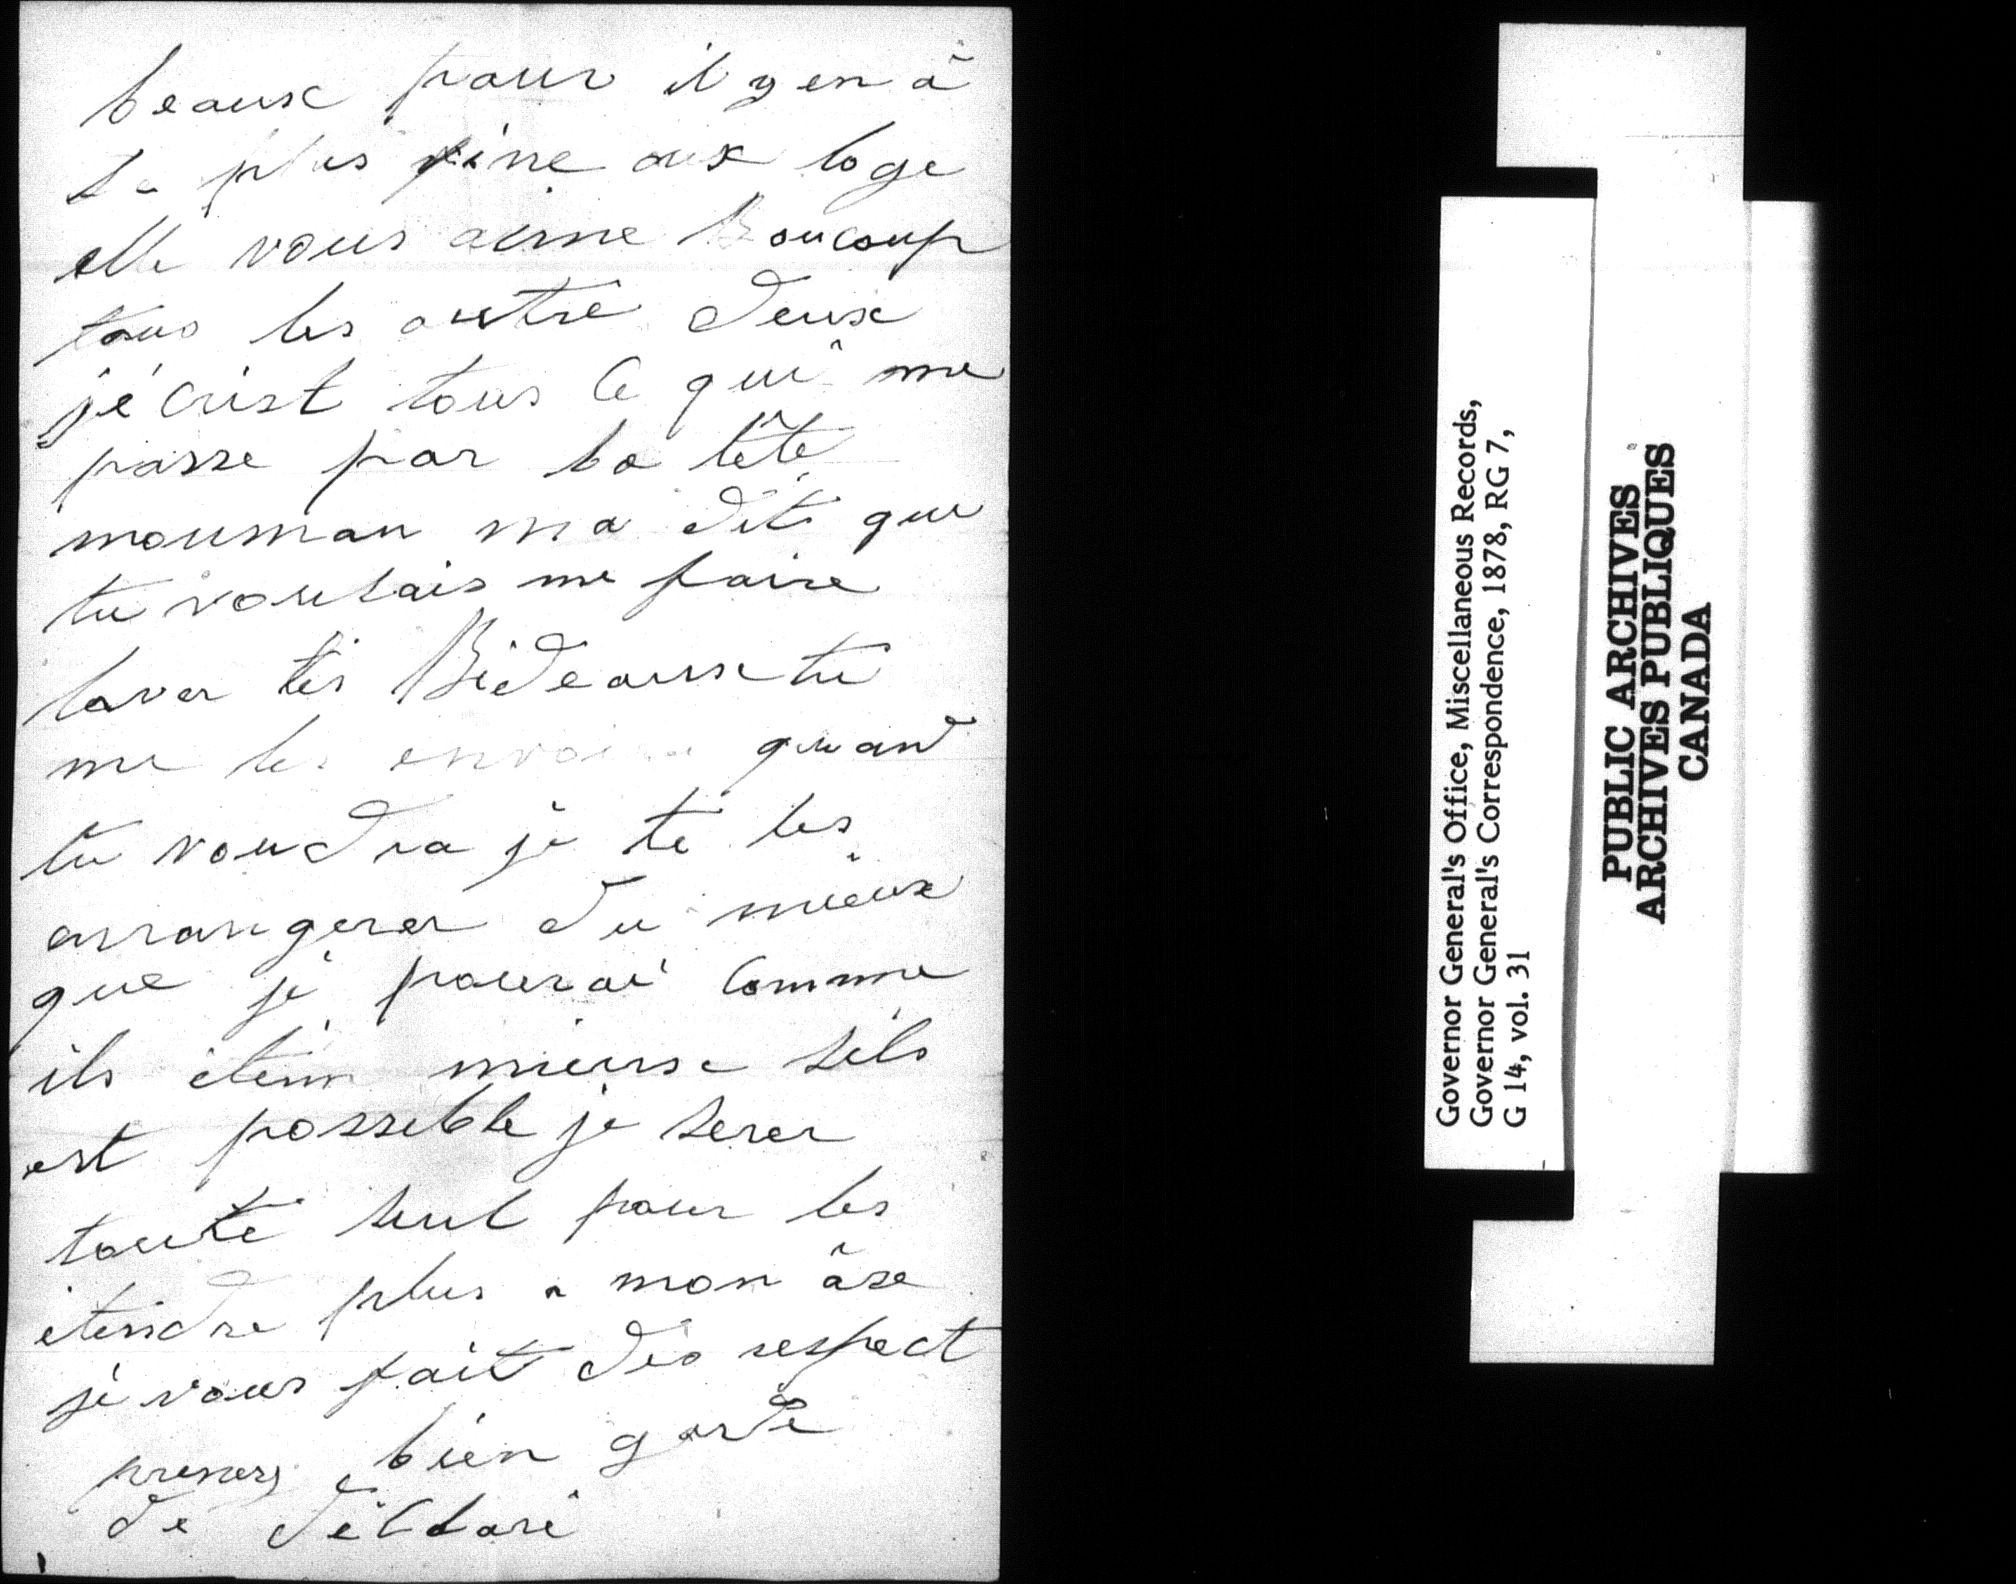 beaux pour il y en à
la plus fine aux loge
elle vous aime Boucoup
tous les autre deux
j'é crist tous Ce qui me
passe par la tête
mouman ma dit que
tu voulais me faire
laver tes Rideaux tu
me les quand
tu voudra je te les
arrangerer du mieux
que je pourai Comme
ils mieux sils
est possible je serer
toute seul pour les
étendre plus a mon âse
je vous fait des respect
prenez bien garde
de
Governor General's Office, Miscellaneous Records,
Governor General's Correspondence, 1878, RG 7,
G 14, vol. 31
PUBLIC ARCHIVES
ARCHIVES PUBLIQUES
CANADA